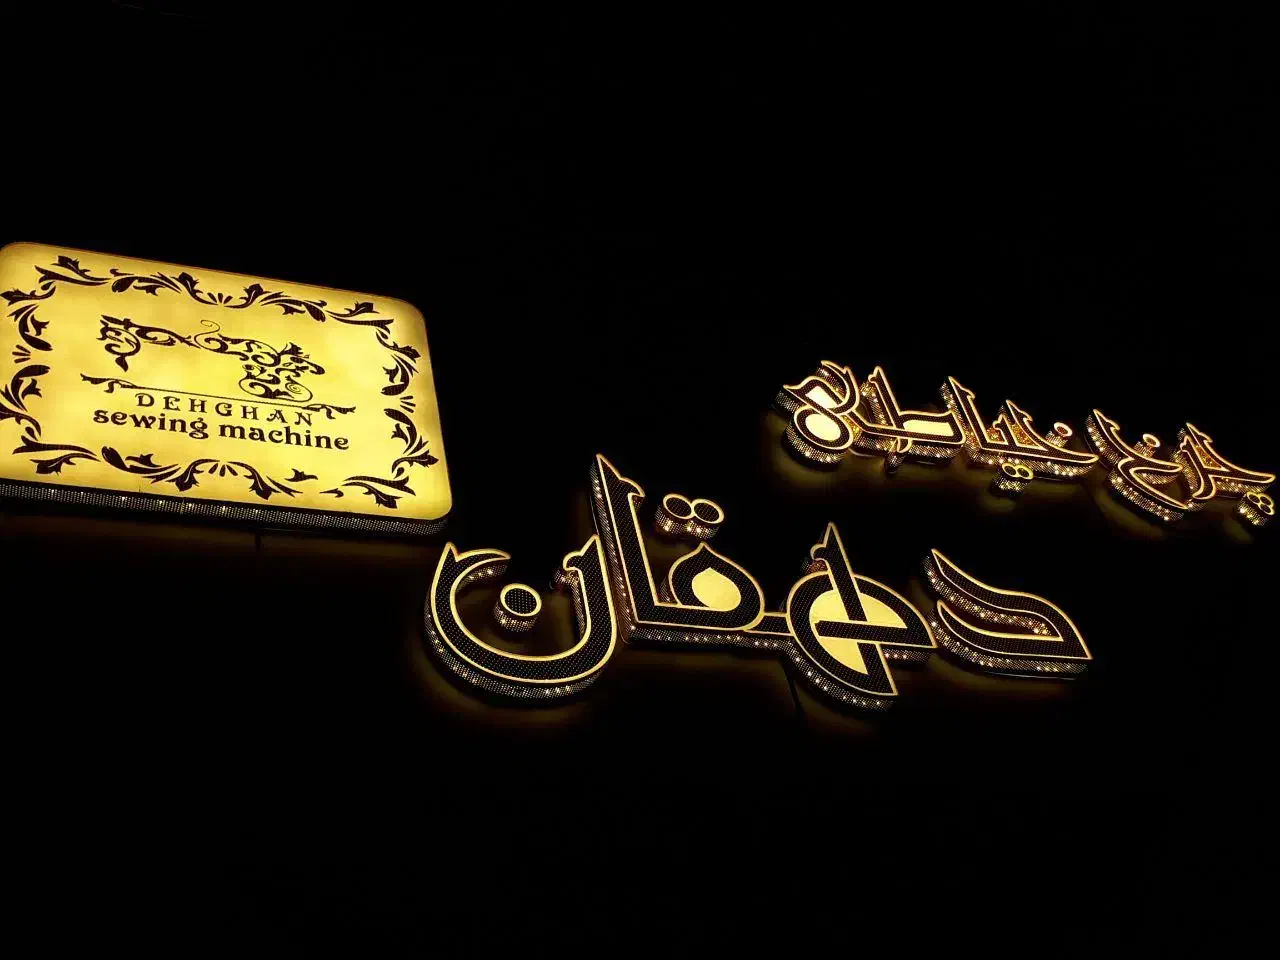 چرخ خیاطی
دهقان
DEHGHAN
sewing machine